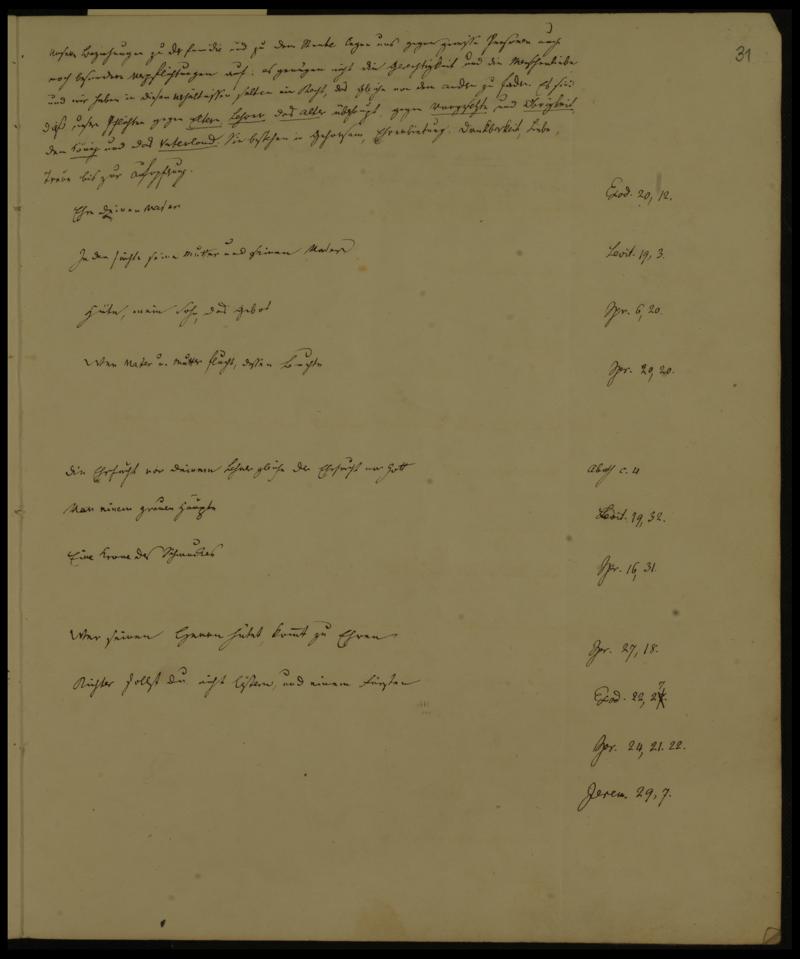 31
Unsere Beziehungen zu der Familie und zu dem Staate legen uns gegen gewisse Personen auch
noch besondere Verpflichtungen auf: es genügen nicht die Gerechtigkeit und die Menschenliebe
und wir haben in diesen Verhältnissen selten ein Recht, das Gleiche von dem andern zu fordern. Es sind
dieß unsere Pflichten gegen Eltern, Lehrer, das Alter überhaupt, gegen Vorgesetzte und Obrigkeit
den König und das Vaterland. Sie bestehen in Gehorsam, Ehrerbietung, Dankbarkeit, Liebe,
Treue bis zur Aufopferung.
Ehre deinen Vater Exod. 20, 12.
Jeder fürchte seine Mutter und seinen Vater Levit. 19, 3.
Hüte, mein Sohn, das Gebot Spr. 6, 20.
Wer Vater u. Mutter flucht, dessen Leuchte Spr. 20, 20.
Die Ehrfurcht vor deinem Lehrer gleiche der Ehrfurcht vor Gott Aboth c. 4
Vor einem grauen Haupte Levit. 19, 32.
Eine Krone des Schmuckes Spr. 16, 31.
Wer seinen Herrn hütet, kommt zu Ehren Spr. 27, 18.
Richter sollst du nicht lästern, und einem Fürsten Exod. 22, 27.
Spr. 24, 21. 22.
Jerem. 29, 7.